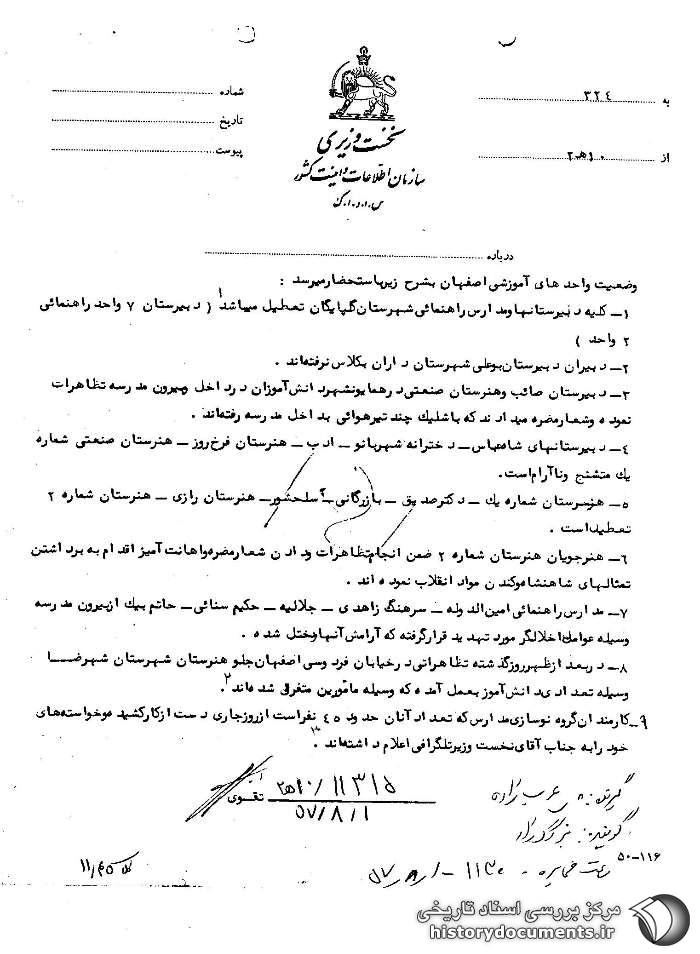 به ۳۲۴
شماره
تاریخ
از ۱۰ ﻫ ۲
پیوست
نخست وزیری
سازمان اطلاعات و امنیت کشور
س.ا.و.ا.ک
درباره
وضعیت واحد های آموزشی اصفهان بشرح زیر باستحضار میرسد :
۱ـ کلیه دبیرستانها و مدارس راهنمائی شهرستان گلپایگان تعطیل میباشد ( دبیرستان ۷ واحد راهنمائی
۲ واحد )
۲ـ دبیران دبیرستان بوعلی شهرستان داران بکلاس نرفته‌اند .
۳ـ دبیرستان صائب وهنرستان صنعتی در همایونشهر دانش‌آموزان در داخل وبیرون مدرسه تظاهرات
نموده وشعار مضره میدادند که با شلیك چند تیر هوائی بداخل مدرسه رفته‌اند .
۴ـ دبیرستانهای شاه‌عباس ـ دخترانه شهربانو ـ ادب ـ هنرستان فرخ روز ـ هنرستان صنعتی شماره
یك متشنج وناآرام است.
۵ـ هنرستان شماره یك ـ دکتر صدیق ـ بازرگانی ـ اسلحشور ـ هنرستان رازی ـ هنرستان شماره ۲
تعطیل است .
۶ـ هنرجویان هنرستان شماره ۲ ضمن انجام تظاهرات ودادن شعار مضره واهانت آمیز اقدام به برداشتن
تمثالهای شاهنشاه وکندن مواد انقلاب نموده اند .
۷ـ مدارس راهنمائی امین الدوله ـ سرهنگ زاهدی ـ جلالیه ـ حکیم سنائی ـ حاتم بیك از بیرون مدرسه
وسیله عوامل اخلالگر مورد تهدید قرار گرفته که آرامش آنها مختل شده .
۸ـ در بعد از ظهر روز گذشته تظاهراتی در خیابان فردوسی اصفهان جلو هنرستان شهرستان شهرضا
وسیله تعدادی دانش‌آموز بعمل آمده که وسیله مأمورین متفرق شده‌اند .۲
۹ـ کارمندان گروه نوسازی مدارس که تعداد آنان حدود ۴۵ نفر است از روز جاری دست از کار کشیده وخواسته‌های
خود را به جناب آقای نخست وزیر تلگرافی اعلام داشته‌اند .۳
تقوی
۱۱۳۱۵/۱۰ﻫ۲
۵۷/۸/۱
گیرنده: عرب زاده
گوینده:
ساعت مخابره ۱۱۳۰ - ۵۷/۸/۱
۵۰-۱۱۶
مرکز بررسی اسناد تاریخی
historydocuments.ir